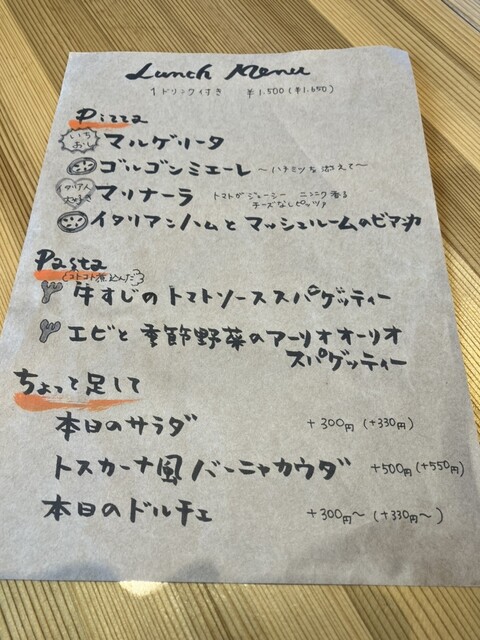 Lunch Menu
1ドリンク付き ¥1,500(¥1,650)
Pizza
いちおし マルゲリータ
ゴルゴンミエーレ ～ハチミツを添えて～
イタリアン大好き マリナーラ トマトがジューシー ニンニク香る
チーズなしピッツァ
イタリアンハムとマッシュルームのピアンカ
Pasta
コトコト煮込んだ
牛すじのトマトソーススパゲッティー
エビと季節野菜のアーリオオーリオ
スパゲッティー
ちょっと足して
本日のサラダ +300円(+330円)
トスカーナ風バーニャカウダ +500円(+550円)
本日のドルチェ +300円～(+330円～)